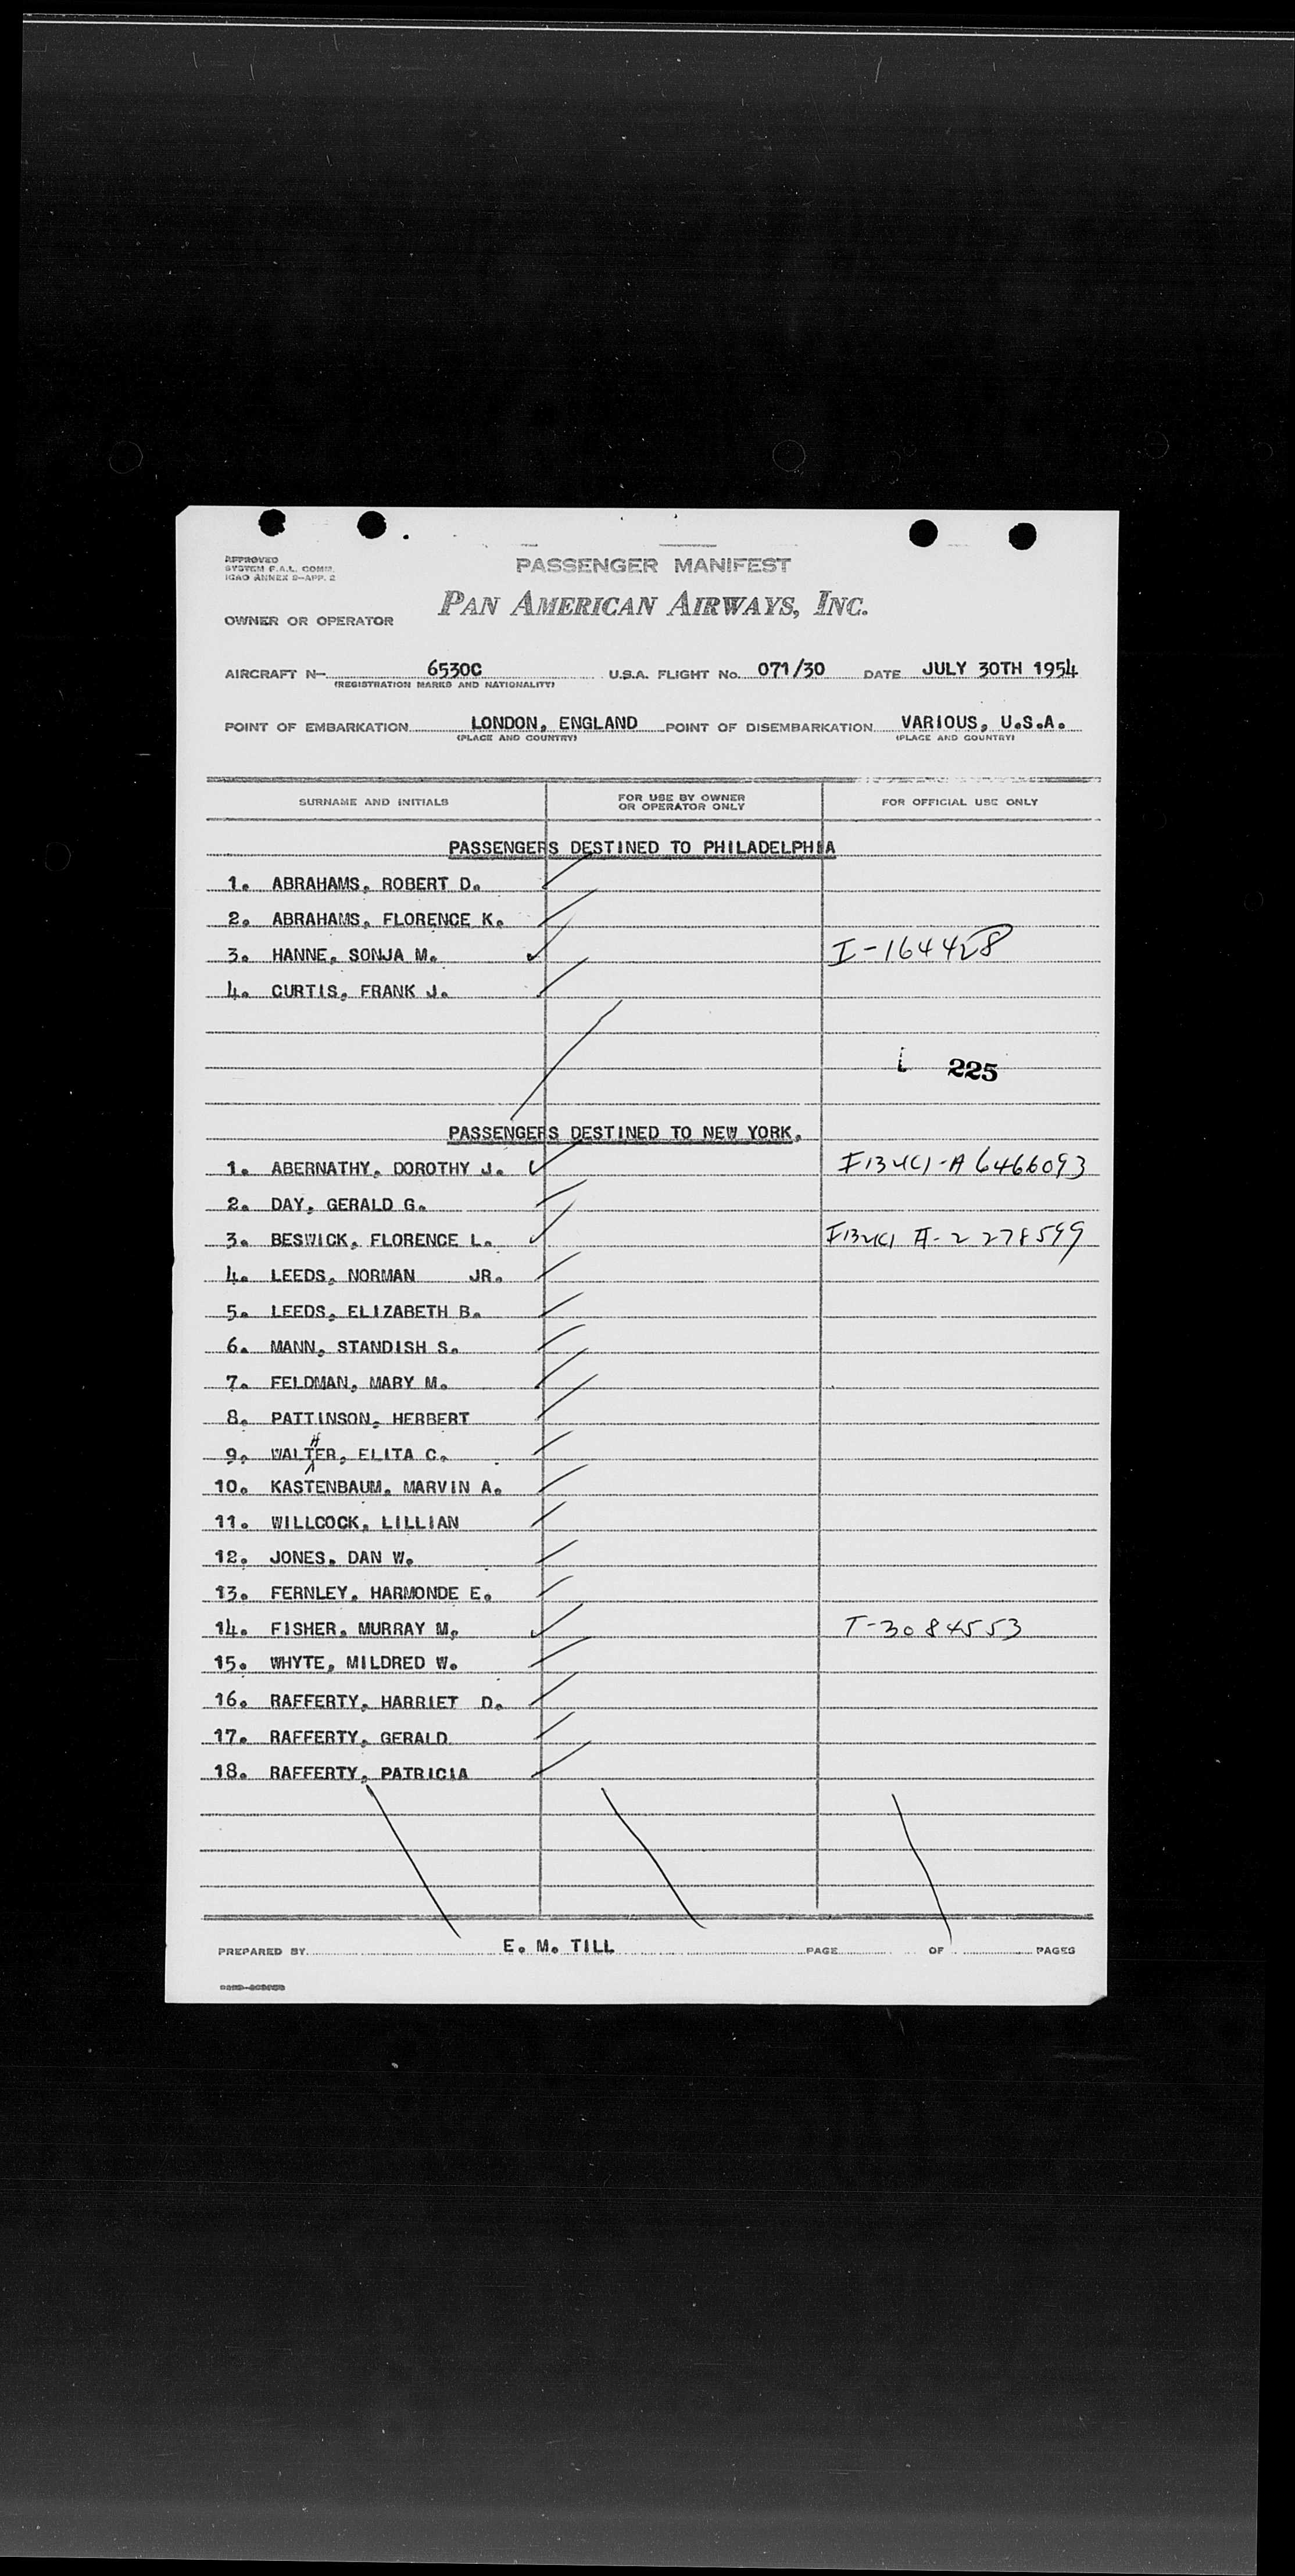 APPROVED
SYSTEM F.A.L. COMM.
ICAO ANNEX 9-APP. 2
PASSENGER MANIFEST
PAN AMERICAN AIRWAYS, INC.
OWNER OR OPERATOR
AIRCRAFT N- 6530C U.S.A. FLIGHT NO. 071/30 DATE JULY 30TH 1954
(REGISTRATION MARKS AND NATIONALITY)
POINT OF EMBARKATION LONDON, ENGLAND POINT OF DISEMBARKATION VARIOUS, U.S.A.
(PLACE AND COUNTRY) (PLACE AND COUNTRY)
SURNAME AND INITIALS FOR USE BY OWNER OR OPERATOR ONLY FOR OFFICIAL USE ONLY
PASSENGERS DESTINED TO PHILADELPHIA
1. ABRAHAMS, ROBERT D.
2. ABRAHAMS, FLORENCE K.
3. HANNE, SONJA M. I-164428
4. CURTIS, FRANK J.
225
PASSENGERS DESTINED TO NEW YORK.
1. ABERNATHY, DOROTHY J. A6466093
2. DAY, GERALD G.
3. BESWICK, FLORENCE L. 2278599
4. LEEDS, NORMAN JR.
5. LEEDS, ELIZABETH B.
6. MANN, STANDISH S.
7. FELDMAN, MARY M.
8. PATTINSON, HERBERT
9. WALTHER, ELITA C.
10. KASTENBAUM, MARVIN A.
11. WILLCOCK, LILLIAN
12. JONES, DAN W.
13. FERNLEY, HARMONDE E.
14. FISHER, MURRAY M. T-3084553
15. WHYTE, MILDRED W.
16. RAFFERTY, HARRIET D.
17. RAFFERTY, GERALD
18. RAFFERTY, PATRICIA
PREPARED BY E. M. TILL PAGE OF PAGES